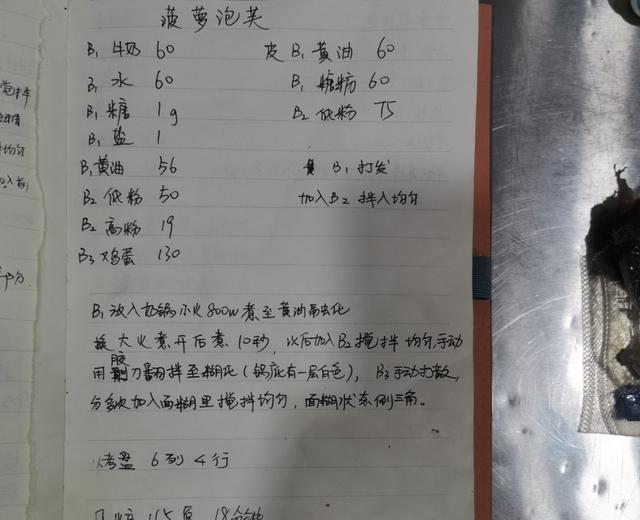 菠萝泡芙
B₁ 牛奶 60 皮 B₁ 黄油 60
B₁ 水 60 B₁ 糖粉 60
B₁ 糖 1g B₂ 低粉 75
B₁ 盐 1
B₁ 黄油 56 B₁ 打发
B₂ 低粉 50 加入B₂ 拌入均匀
B₂ 高粉 19
B₃ 鸡蛋 130
B₁ 放入奶锅小火800w煮至黄油融化
换大火煮开后煮10秒,以后加入B₂搅拌均匀,手动
用胶刮刀翻拌至糊化(锅底有一层白色),B₃手动打散,
分多次加入面糊里搅拌均匀,面糊状态倒三角。
烤盘 6列4行
搅拌
均匀
加入
分